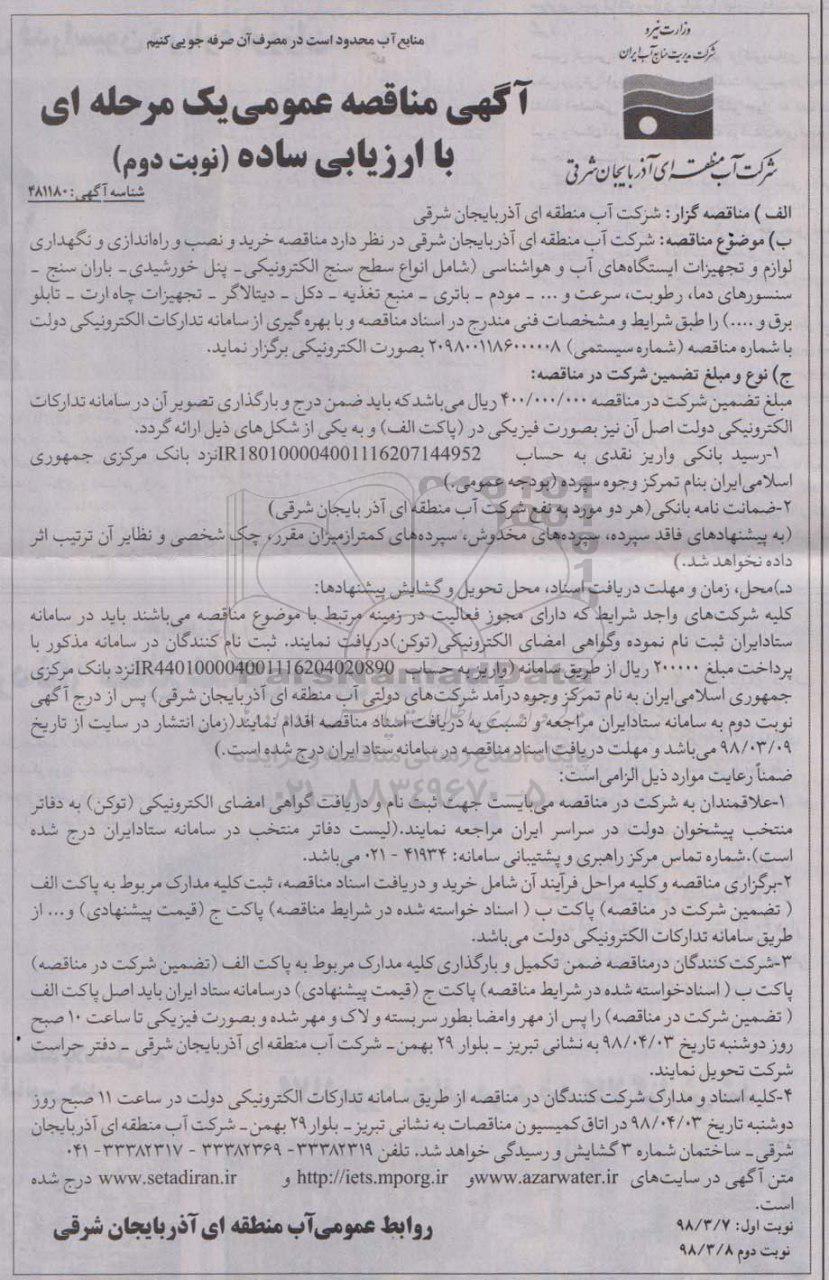 وزارت نیرو
شرکت مدیریت منابع آب ایران
منابع آب محدود است در مصرف آن صرفه جویی کنیم
شرکت آب منطقه ای آذربایجان شرقی
آگهی مناقصه عمومی یک مرحله ای
با ارزیابی ساده (نوبت دوم)
شناسه آگهی: ۴۸۱۱۸۰
الف ) مناقصه گزار: شرکت آب منطقه ای آذربایجان شرقی
ب) موضوع مناقصه: شرکت آب منطقه ای آذربایجان شرقی در نظر دارد مناقصه خرید و نصب و راه‌اندازی و نگهداری
لوازم و تجهیزات ایستگاه‌های آب و هواشناسی (شامل انواع سطح سنج الکترونیکی- پنل خورشیدی- باران سنج -
سنسورهای دما، رطوبت، سرعت و ... - مودم - باتری - منبع تغذیه - دکل - دیتالاگر - تجهیزات چاه ارت - تابلو
برق و ....) را طبق شرایط و مشخصات فنی مندرج در اسناد مناقصه و با بهره گیری از سامانه تدارکات الکترونیکی دولت
با شماره مناقصه (شماره سیستمی) ۲۰۹۸۰۰۱۱۸۶۰۰۰۰۰۸ بصورت الکترونیکی برگزار نماید.
ج) نوع و مبلغ تضمین شرکت در مناقصه:
مبلغ تضمین شرکت در مناقصه ۴۰۰/۰۰۰/۰۰۰ ریال می‌باشد که باید ضمن درج و بارگذاری تصویر آن در سامانه تدارکات
الکترونیکی دولت اصل آن نیز بصورت فیزیکی در (پاکت الف) و به یکی از شکل‌های ذیل ارائه گردد.
۱-رسید بانکی واریز نقدی به حساب IR180100004001116207144952نزد بانک مرکزی جمهوری
اسلامی‌ایران بنام تمرکز وجوه سپرده (بودجه عمومی.)
۲-ضمانت نامه بانکی(هر دو مورد به نفع شرکت آب منطقه ای آذر بایجان شرقی)
(به پیشنهادهای فاقد سپرده، سپرده‌های مخدوش، سپرده‌های کمتر ازمیزان مقرر، چک شخصی و نظایر آن ترتیب اثر
داده نخواهد شد.)
د)محل، زمان و مهلت دریافت اسناد، محل تحویل و گشایش پیشنهادها:
کلیه شرکت‌های واجد شرایط که دارای مجوز فعالیت در زمینه مرتبط با موضوع مناقصه می‌باشند باید در سامانه
ستادایران ثبت نام نموده وگواهی امضای الکترونیکی(توکن)دریافت نمایند. ثبت نام کنندگان در سامانه مذکور با
پرداخت مبلغ ۲۰۰۰۰۰ ریال از طریق سامانه (واریز به حساب IR440100004001116204020890نزد بانک مرکزی
جمهوری اسلامی‌ایران به نام تمرکز وجوه درآمد شرکت‌های دولتی آب منطقه ای آذربایجان شرقی) پس از درج آگهی
نوبت دوم به سامانه ستادایران مراجعه و نسبت به دریافت اسناد مناقصه اقدام نمایند(زمان انتشار در سایت از تاریخ
۹۸/۰۳/۰۹ می‌باشد و مهلت دریافت اسناد مناقصه در سامانه ستاد ایران درج شده است.)
ضمناً رعایت موارد ذیل الزامی‌است:
۱-علاقمندان به شرکت در مناقصه می‌بایست جهت ثبت نام و دریافت گواهی امضای الکترونیکی (توکن) به دفاتر
منتخب پیشخوان دولت در سراسر ایران مراجعه نمایند.(لیست دفاتر منتخب در سامانه ستادایران درج شده
است).شماره تماس مرکز راهبری و پشتیبانی سامانه: ۴۱۹۳۴ - ۰۲۱ می‌باشد.
۲-برگزاری مناقصه و کلیه مراحل فرآیند آن شامل خرید و دریافت اسناد مناقصه، ثبت کلیه مدارک مربوط به پاکت الف
( تضمین شرکت در مناقصه) پاکت ب ( اسناد خواسته شده در شرایط مناقصه) پاکت ج (قیمت پیشنهادی) و... از
طریق سامانه تدارکات الکترونیکی دولت می‌باشد.
۳-شرکت کنندگان درمناقصه ضمن تکمیل و بارگذاری کلیه مدارک مربوط به پاکت الف (تضمین شرکت در مناقصه)
پاکت ب ( اسنادخواسته شده در شرایط مناقصه) پاکت ج (قیمت پیشنهادی) درسامانه ستاد ایران باید اصل پاکت الف
( تضمین شرکت در مناقصه) را پس از مهر وامضا بطور سربسته و لاک و مهر شده و بصورت فیزیکی تا ساعت ۱۰ صبح
روز دوشنبه تاریخ ۹۸/۰۴/۰۳ به نشانی تبریز - بلوار ۲۹ بهمن- شرکت آب منطقه ای آذربایجان شرقی - دفتر حراست
شرکت تحویل نمایند.
۴-کلیه اسناد و مدارک شرکت کنندگان در مناقصه از طریق سامانه تدارکات الکترونیکی دولت در ساعت ۱۱ صبح روز
دوشنبه تاریخ ۹۸/۰۴/۰۳ در اتاق کمیسیون مناقصات به نشانی تبریز - بلوار ۲۹ بهمن- شرکت آب منطقه ای آذربایجان
شرقی - ساختمان شماره ۳ گشایش و رسیدگی خواهد شد. تلفن ۳۳۳۸۲۳۱۹- ۳۳۳۸۲۳۶۹ - ۳۳۳۸۲۳۱۷- ۰۴۱
متن آگهی در سایت‌های www.azarwater.ir و http://iets.mporg.ir و www.setadiran.ir درج شده
است.
نوبت اول: ۹۸/۳/۷
نوبت دوم ۹۸/۳/۸
روابط عمومی آب منطقه ای آذربایجان شرقی
ParsNamadData
پایگاه اطلاع رسانی مناقصه و مزایده
۰۲۱-۸۸۳۴۹۶۷۰-۵